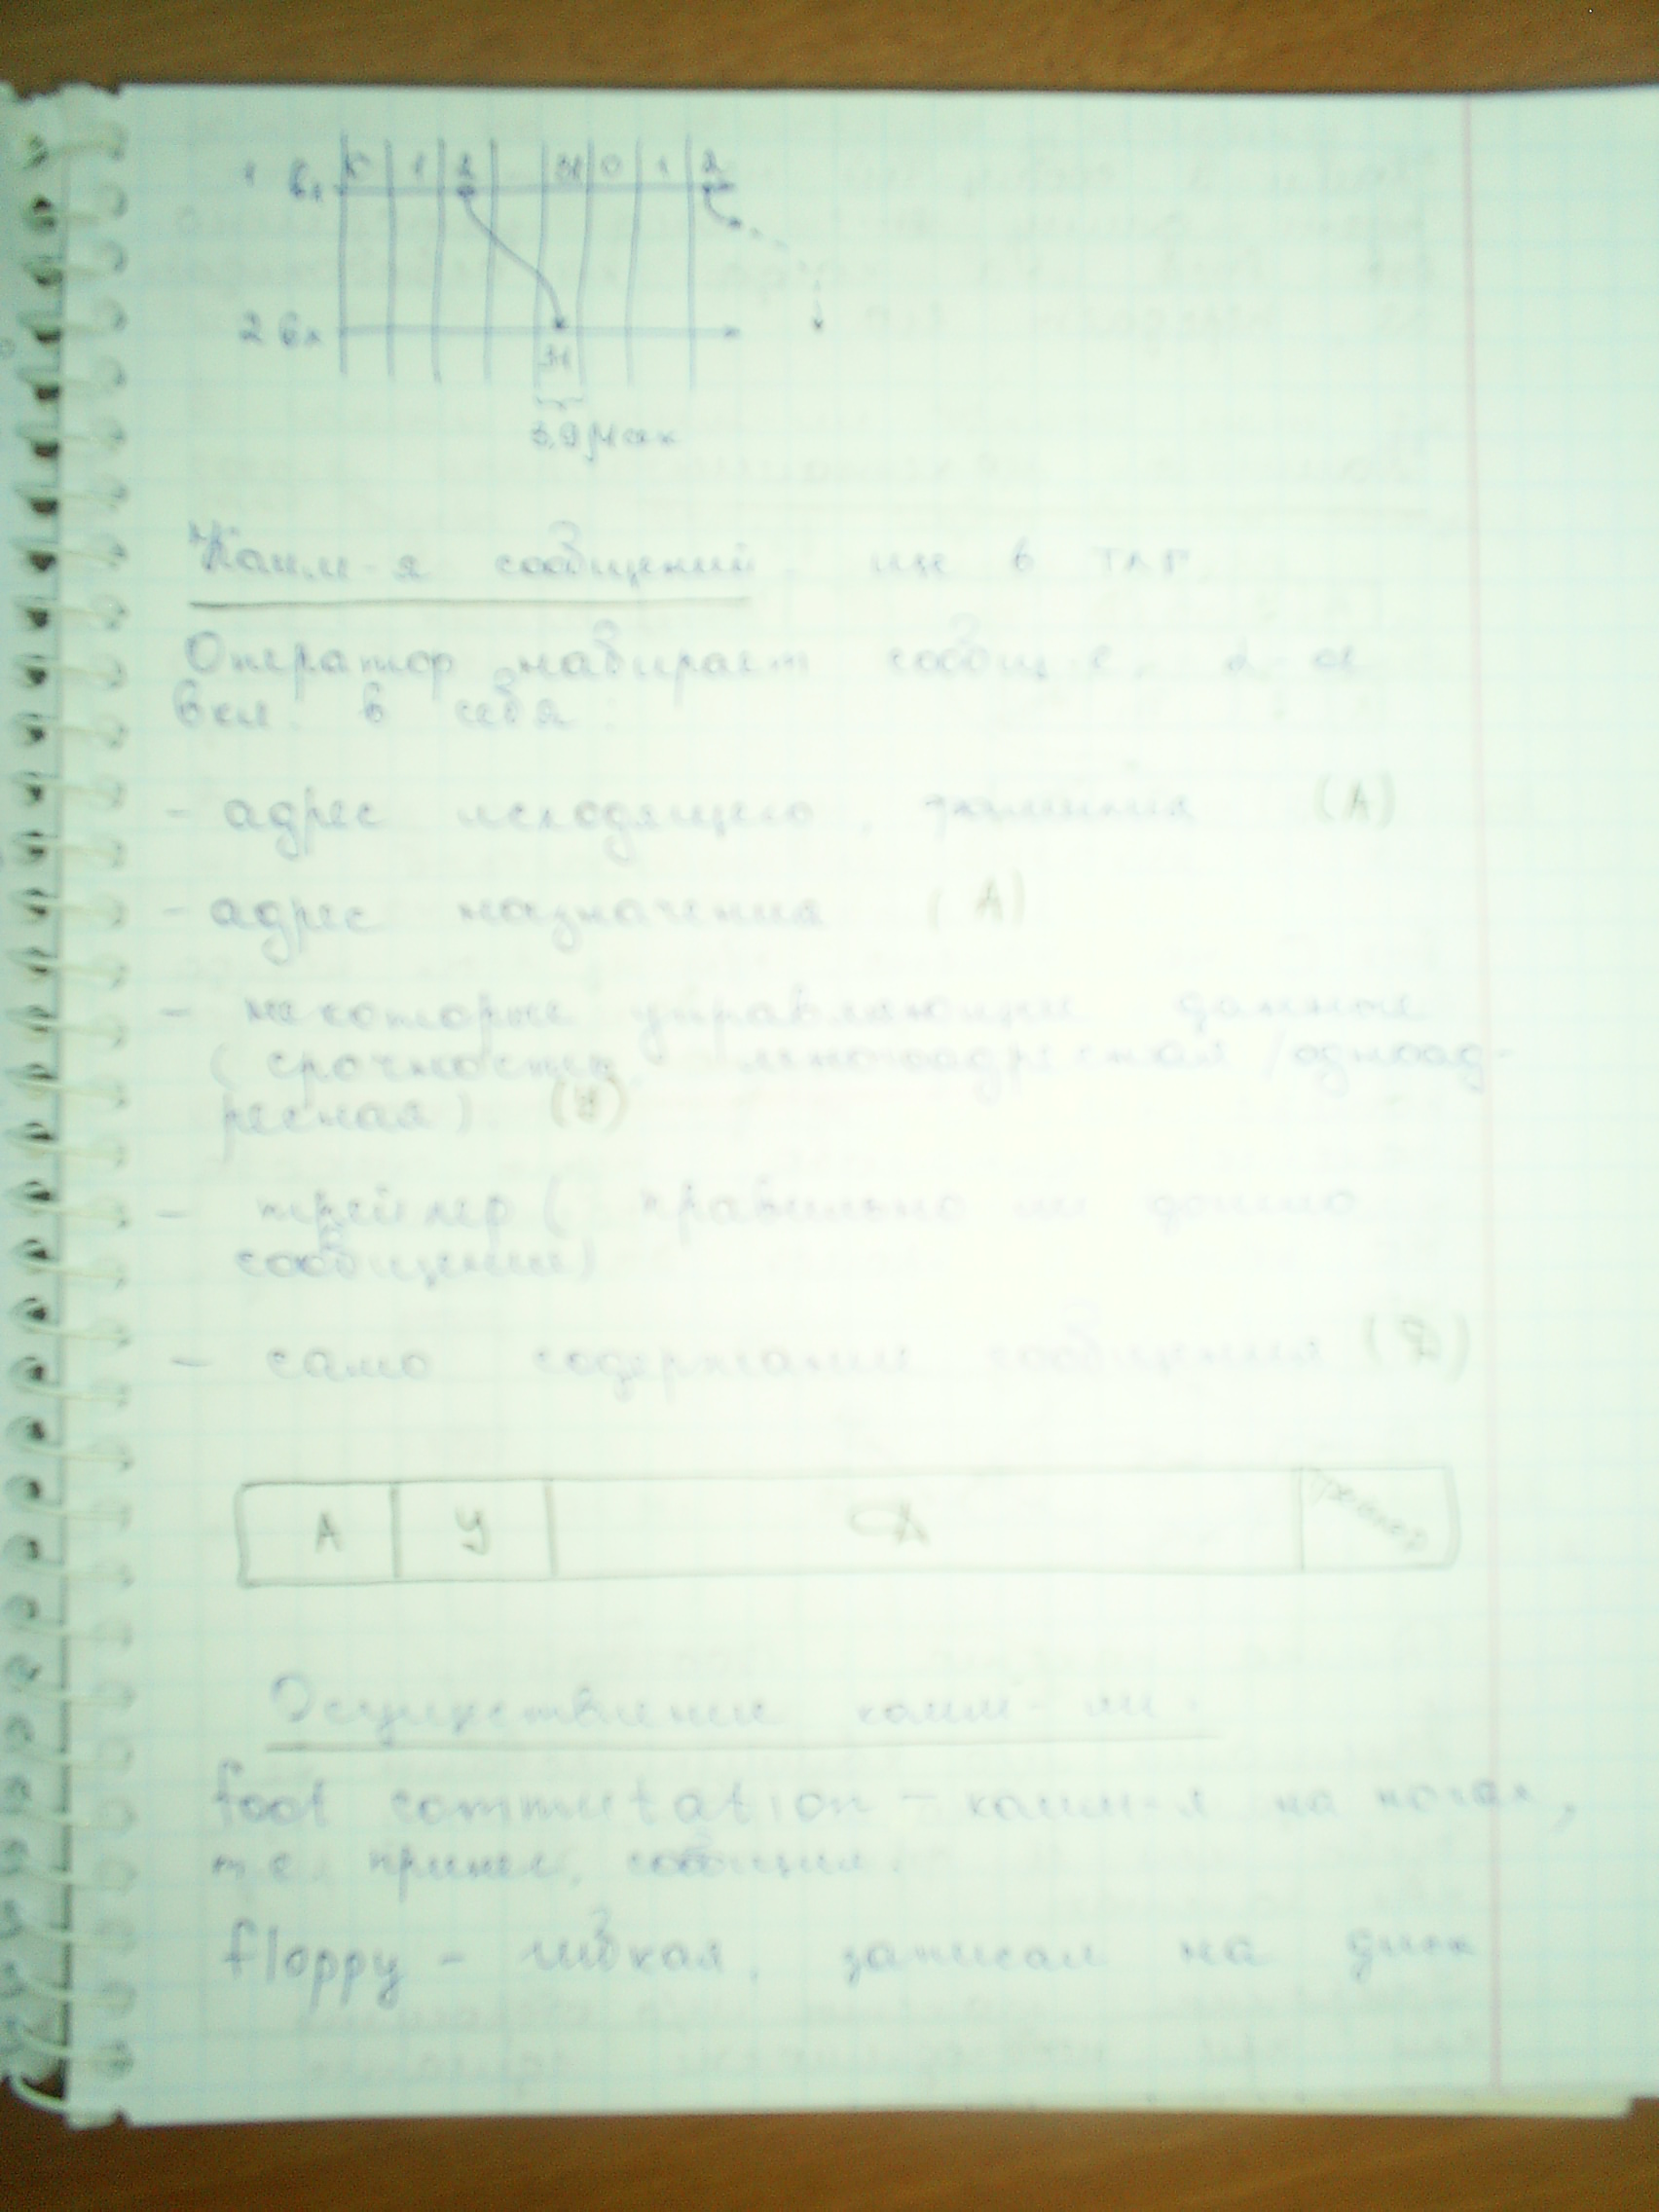 1 вл 0 1 2 31 0 1 2
2 вл
31
3,9 мкс
Комм-я сообщений исп в ТЛГ
Оператор набирает сообщ-е,
вкл. в себя:
- адрес исходящего, (А)
- адрес назначения (А)
- некоторые управляющие данные
(срочность, многоадресная/одноад-
ресная) (У)
- трейлер (правильно ли дошло
сообщение)
- само содержание сообщения (Д)
А У Д трейлер
Осуществление комм-ии:
foot commutation - комм-я на ногах,
т.е. сообщил.
floppy - гибкая, записал на диск